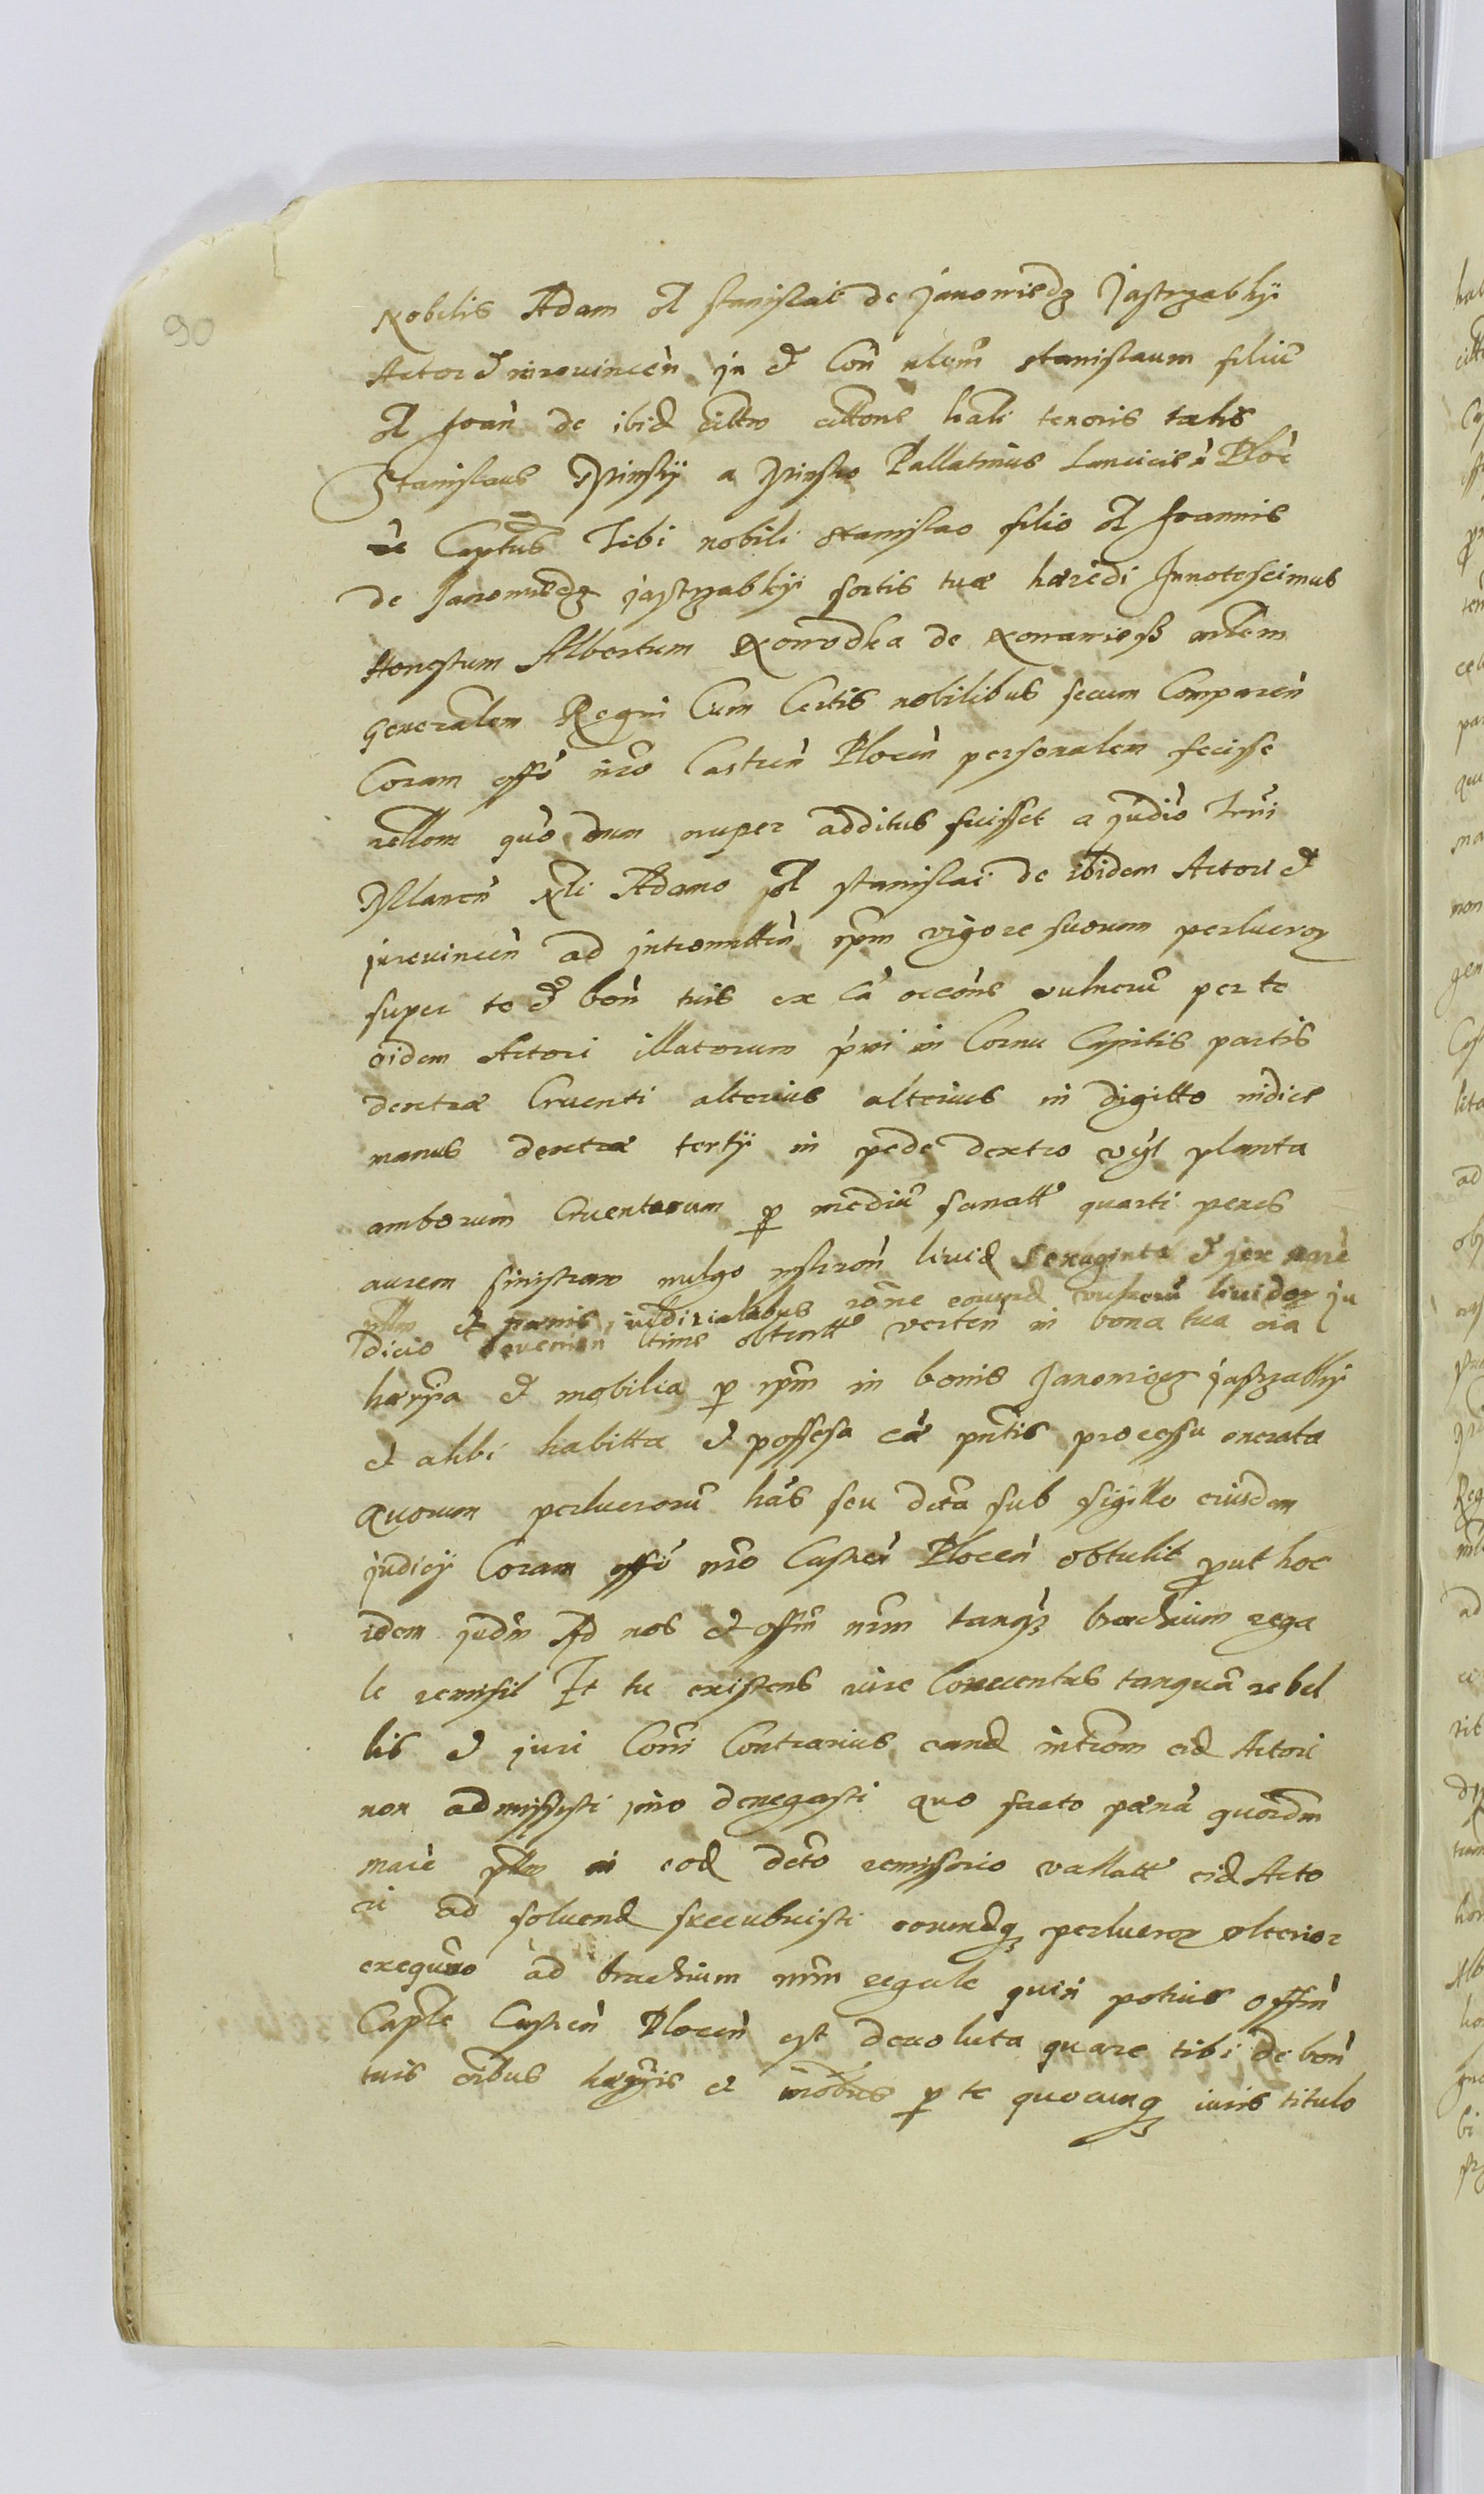 90
Nobilis Adam ol Stanislai de Janowiedz Jastrzabky
Actor et in revincen in et con nlem Stanislaum filiu
ol Joan de ibid citto cittone hali tenoris talis
Stanislaus Minsky a Minsko Pallatinus Lancicien Ploc
ce Captus Tibi nobili Stanislao filio ol Joannis
de Janowiedz Jastrzabky sortis tuæ hæredi Innotescimus
Honestum Albertum de mlem
generalem Regni Cum Certis nobilibus secum Comparen
Coram offo nro Castren Plocen personalem fecisse
rellem quo dum nuper additus fuisset a judio Trri
Nli Adamo ol Stanislai de ibidem Actori et
in revincen ad intromitten ipm vigore suorum perlucror
super te et bon tuis ex ca occone vulneru per te
eidem Actori illatorum pmi in Cornu Capitis partis
dextræ Cruenti alterius alterius in digitto indice
manus dextræ tertii in pede dextro vgl planta
amborum Cruentorum p mediu sanatt quarti penes
aurem sinistram vulgo livid Sexaginta et sex marc
pllm et pænis iudicialibus rone eorund vulneru lividor ju
dicio time obtentt verten in bona tua oia
hæria et mobilia p ipm in bonis Janowiedz Jastrzabky
et alibi habitta et possessa ca pntis processu onerata
quorum perlucroru has seu decta sub sigillo eiusdem
judicii Coram offo nro Castren Plocen obtulit prout hoc
idem judm Ad nos et offm nrm tanqz brachium rega
le remisit Et tu existens iure Conventus tanqua rebel
lis et juri Coni Contrarius eand introm eid Actori
non admissisti imo denegasti quo facto pæna quordm
marc pllm in eod decto remissorio vallatt eid Acto
ri ad solvend succubuisti eorundqz perlucror ulterior
exequtio ad brachium nrm regale quin potius offm
Caple Castren Plocen est devoluta quare tibi de bon
tuis oibus hæriis et mobus p te quocunqz iuris titulo